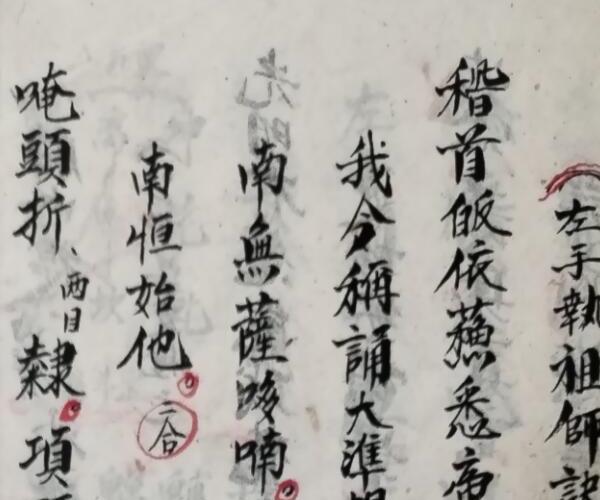 左手執祖師訣
稽首皈依蘓悉帝
我今稱誦大準提
南無薩哆喃
南恒始他
二合
唵頭折
両目
隸項